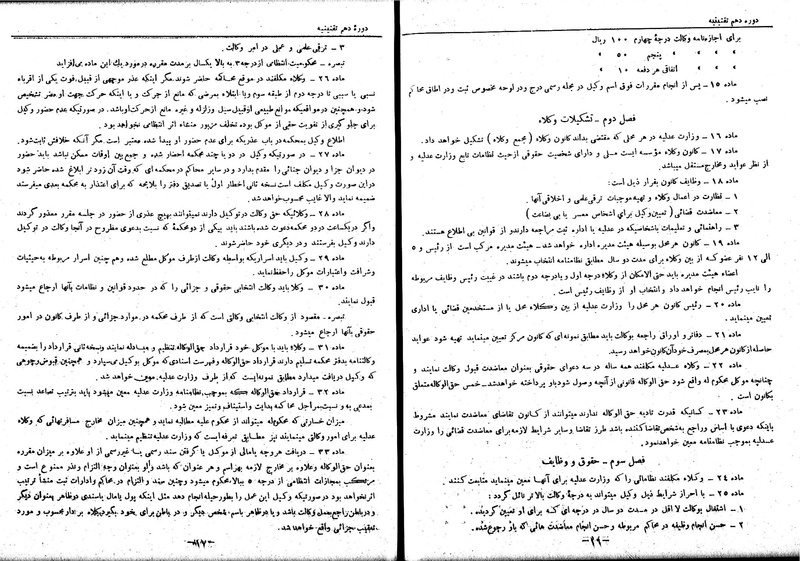 دوره دهم تقنینیه
برای اجازه‌نامه وکالت درجهٔ چهارم ۱۰۰ ریال
» » » پنجم ۵۰ »
» » اتفاقی هر دفعه ۱۰ »
ماده ۱۵ – پس از انجام مقررات فوق اسم وکیل در مجله رسمی درج و در لوحه مخصوص ثبت و در اطاق محاکم
نصب میشود.
فصل دوم – تشکیلات وکلاء
ماده ۱۶ – وزارت عدلیه در هر محلی که مقتضی بداند کانون وکلاء (مجمع وکلاء) تشکیل خواهد داد.
ماده ۱۷ – کانون وکلاء مؤسسه ایست ملی و دارای شخصیت حقوقی از حیث نظامات تابع وزارت عدلیه و
از نظر عواید و مخارج مستقل میباشد.
ماده ۱۸ – وظایف کانون بقرار ذیل است:
۱ – نظارت در اعمال وکلاء و تهیه موجبات ترقی علمی و اخلاقی آنها.
۲ – معاضدت قضائی (تعیین وکیل برای اشخاص معسر یا بی بضاعت)
۳ – راهنمائی و تعلیمات باشخاصیکه در عدلیه یا اداره ثبت مراجعه دارند و از قوانین بی اطلاع هستند.
ماده ۱۹ – کانون هر محل بوسیله هیئت مدیره اداره خواهد شد – هیئت مدیره مرکب است از رئیس و ۵
الی ۱۲ نفر عضو که از بین وکلاء برای مدت دو سال مطابق نظامنامه انتخاب میشوند.
اعضاء هیئت مدیره باید حتی الامکان از وکلاء درجه اول و یا درجه دوم باشند در غیبت رئیس وظایف مربوطه
را نایب رئیس انجام خواهد داد و انتخاب او از وظایف رئیس است.
ماده ۲۰ – رئیس کانون هر محل را وزارت عدلیه از بین وکلاء محل یا از مستخدمین قضائی یا اداری
تعیین مینماید.
ماده ۲۱ – دفاتر و اوراق راجعه بوکالت باید مطابق نمونه‌ای که کانون مرکز تعیین مینماید تهیه شود عواید
حاصله از کانون هر محل بمصرف خود آن کانون خواهد رسید.
ماده ۲۲ – وکلاء عدلیه مکلفند همه ساله در سه دعوای حقوقی بعنوان معاضدت قبول وکالت نمایند و
چنانچه موکل محکوم له واقع شود حق الوکاله قانونی از آنچه وصول شود باو پرداخته خواهد شد – خمس حق الوکاله متعلق
بکانون است.
ماده ۲۳ – کسانیکه قدرت تادیه حق الوکاله ندارند میتوانند از کانون تقاضای معاضدت نمایند مشروط
باینکه دعوی با اساس و راجع بشخص تقاضا کننده باشد طرز تقاضا و سایر شرایط لازمه برای معاضدت قضائی را وزارت
عدلیه بموجب نظامنامه معین خواهد نمود.
فصل سوم – حقوق و وظایف
ماده ۲۴ – وکلاء مکلفند نظاماتی را که وزارت عدلیه برای آنها معین مینماید متابعت کنند.
ماده ۲۵ – با احراز شرایط ذیل وکیل میتواند به درجهٔ وکالت بالاتر نائل گردد:
۱ – اشتغال بوکالت لا اقل در مدت دو سال در درجه‌ای که برای او تعیین گردیده.
۲ – حسن انجام وظیفه در محاکم مربوطه و حسن انجام معاضدت هائی که باو رجوع شده.
– ۹۶ –
دورهٔ دهم تقنینیه
۳ – ترقی علمی و عملی در امر وکالت.
تبصره – محکومیت انتظامی از درجه ۳ به بالا یکسال بر مدت مقرره در مورد یک این ماده می‌افزاید
ماده ۲۶ – وکلاء مکلفند در موقع محاکمه حاضر شوند مگر اینکه عذر موجهی از قبیل فوت یکی از اقرباء
نسبی یا سببی تا درجه دوم از طبقه سوم و یا ابتلاء بمرضی که مانع از حرکت و یا اینکه حرکت جهت او مضر تشخیص
شود و همچنین در مواقعیکه موانع طبیعی از قبیل سیل و زلزله و غیره مانع از حرکت او باشد. در صورتیکه عدم حضور وکیل
برای جلوگیری از تفویت حقی از موکل بوده تخلف مزبور منشاء اثر انتظامی نخواهد بود.
اطلاع وکیل بمحکمه در باب عذریکه برای عدم حضور او پیدا شده معتبر است مگر آنکه خلافش ثابت شود.
ماده ۲۷ – در صورتیکه وکیل در دو یا چند محکمه احضار شده و جمع بین اوقات ممکن نباشد باید حضور
در دیوان جزا و دیوان جنائی را مقدم بدارد و در سایر محاکم در محکمه‌ای که وقت آن زودتر ابلاغ شده حاضر شود
در این صورت وکیل مکلف است نسخه ثانی اخطار اول یا تصدیق دفتر را بلایحه که برای اعتذار به محکمه بعدی میفرستد
ضمیمه نماید والا غایب محسوب خواهد شد.
ماده ۲۸ – وکلائیکه حق وکالت در توکیل دارند نمیتوانند بهیچ عذری از حضور در جلسه مقرر معذور گردند
و اگر در یکساعت در دو محکمه دعوت شده باشند باید بیکی از دو محکمهٔ که نسبت بدعوی مطروح در آنجا وکالت در توکیل
دارند وکیل بفرستند و در دیگری خود حاضر شوند.
ماده ۲۹ – وکیل باید اسراریکه بواسطه وکالت از طرف موکل مطلع شده و هم چنین اسرار مربوطه به حیثیات
و شرافت و اعتبارات موکل را حفظ نماید.
ماده ۳۰ – وکلا باید وکالت انتخابی حقوقی و جزائی را که در حدود قوانین و نظامات بآنها ارجاع میشود
قبول نمایند.
تبصره – مقصود از وکالت انتخابی وکالتی است که از طرف محکمه در موارد جزائی و از طرف کانون در امور
حقوقی بآنها ارجاع میشود.
ماده ۳۱ – وکلاء باید با موکل خود قرارداد حق الوکاله تنظیم و مبادله نمایند و نسخه ثانی قرارداد را بضمیمه
وکالتنامه بدفتر محکمه تسلیم دارند قرارداد حق الوکاله و فهرست اسنادی که موکل بوکیل می‌سپارد و همچنین قبوض وجوهی
که وکیل دریافت میدارد مطابق نمونه‌ایست که از طرف وزارت عدلیه معین خواهد شد.
ماده ۳۲ – قرارداد حق الوکاله که بموجب نظامنامه وزارت عدلیه معین میشود باید بترتیب تصاعد نسبت
بمدعی به و نسبت بمراحل محاکمه بدایت و استیناف و تمیز معین شود.
میزان خسارتی که محکوم‌له میتواند از محکوم علیه مطالبه نماید و همچنین میزان مخارج مسافرتهائی که وکلاء
عدلیه برای امور وکالتی مینمایند نیز مطابق تعرفه ایست که وزارت عدلیه تنظیم مینماید.
ماده ۳۳ – دریافت هر وجه یا مالی از موکل یا گرفتن سند رسمی یا غیر رسمی از او علاوه بر میزان مقرره
بعنوان حق الوکاله و علاوه بر مخارج لازمه بهر اسم و هر عنوان که باشد ولو بعنوان وجه التزام و نذر ممنوع است و
مرتکب بمجازات انتظامی از درجه ۵ ببالا محکوم میشود و چنین سند و التزام در محاکم و ادارات ثبت منشأ ترتیب
اثر نخواهد بود در صورتیکه وکیل این عمل را بطور حیله انجام دهد مثل اینکه پول یا مال یا سندی در ظاهر بعنوان دیگر
و در باطن راجع بعمل وکالت باشد و یا در ظاهر باسم شخص دیگر و در باطن برای خود بگیرد کلاه بردار محسوب و مورد
تعقیب جزائی واقع خواهد شد.
– ۹۷ –